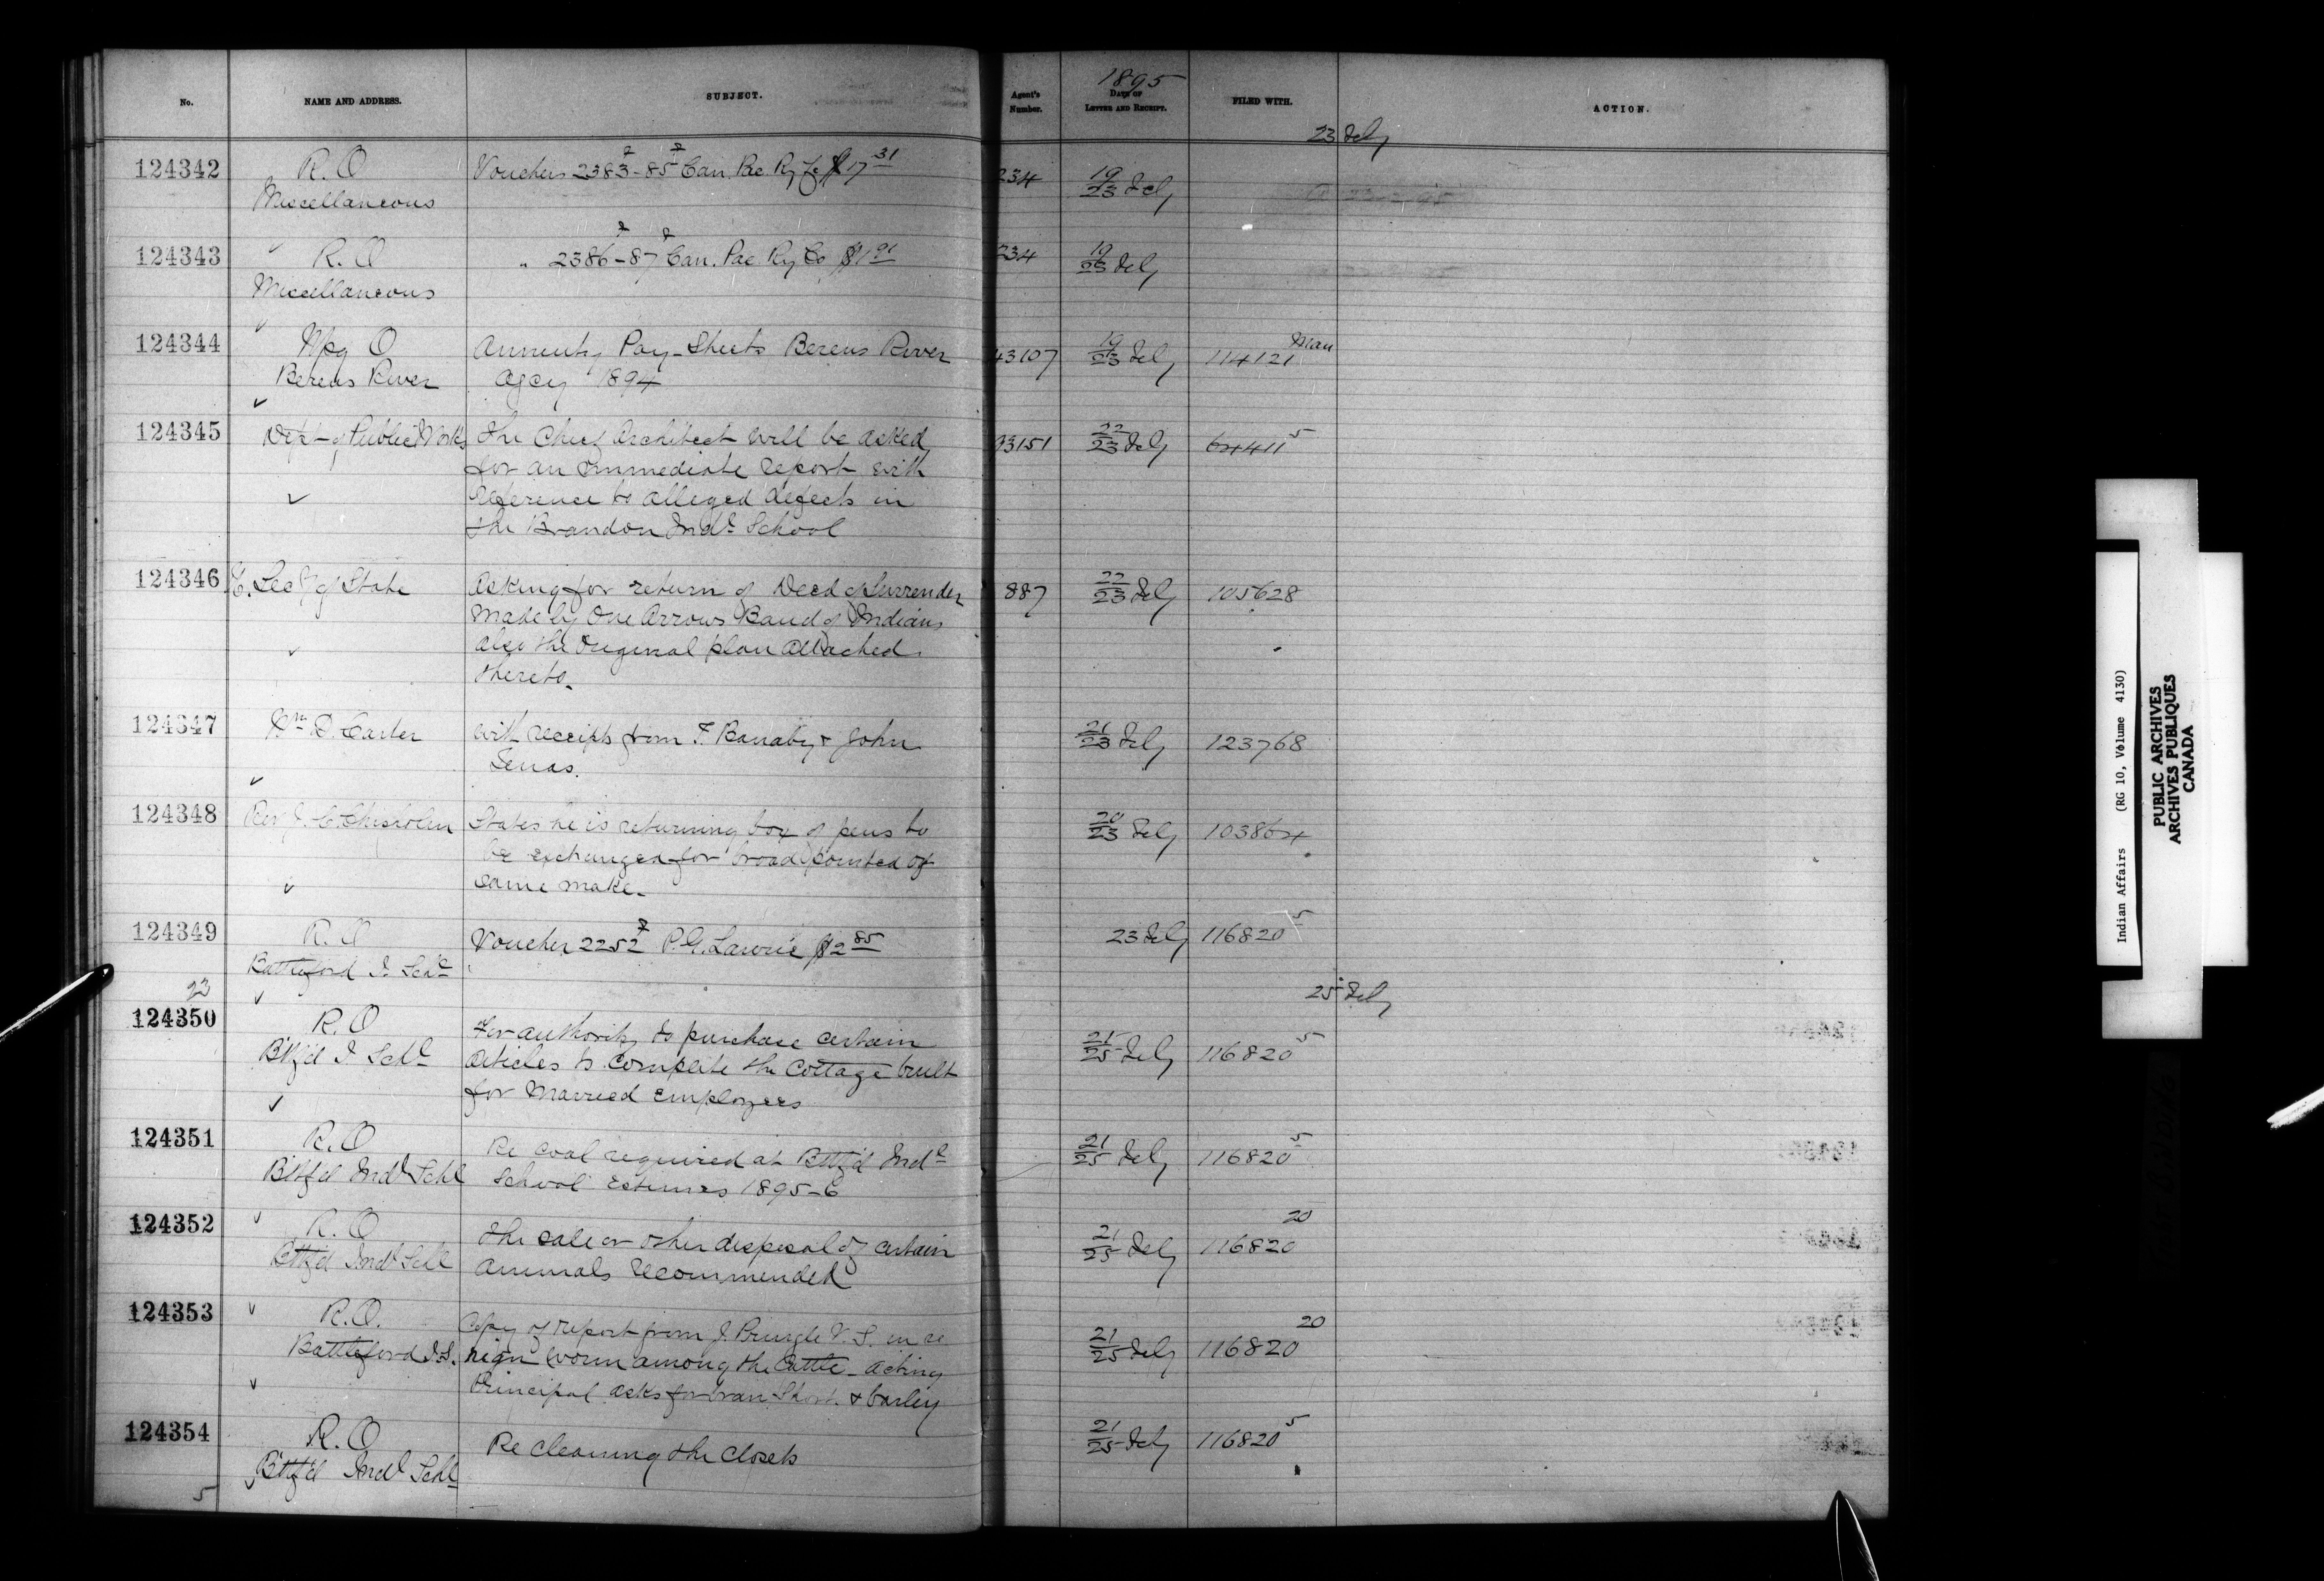 No. NAME AND ADDRESS. SUBJECT. Agent's Number. 1895 DATE OF LETTER AND RECEIPT. FILED WITH. ACTION.
23 Feby
124342 R.O Vouchers 2383-85 Can. Pac. Ry Co $17 31 234 19/23 Feby
Miscellaneous
124343 R.O " 2386-87 Can. Pac. Ry Co $1 91 234 19/23 Feby
Miscellaneous
124344 Wpg O Annuity Pay-Sheets Berens River 43107 19/23 Feby 114121 Man
Berens River Agcy 1894
124345 Dept of Public Works The Chief Architect will be asked 93151 22/23 Feby 64411 5
for an immediate report with
reference to alleged defects in
the Brandon Indl School
124346 U. Secy of State Asking for return of Deed of Surrender 887 22/23 Feby 105628
made by One Arrows Band of Indians
also the original plan attached
thereto.
124347 Wm D. Carter With receipts from F. Barnaby & John 21/23 Feby 123768
Lenas.
124348 Rev J. C. Chisholm States he is returning box of pens to 20/23 Feby 103864
be exchanged for broad pointed of
same make.
124349 R.O Voucher 2252 P.G. Lawrie $2 85 23 Feby 116820 5
Battleford I. Schl
23
25 Feby
124350 R.O For authority to purchase certain 21/25 Feby 116820 5
Bttf'd I Schl articles to complete the cottage built
for married employees
124351 R.O Re coal required at Bttf'd Indl 21/25 Feby 116820 5
Bttf'd Indl Schl School Estimes 1895-6
124352 R.O The sale or other disposal of certain 21/25 Feby 116820 20
Bttf'd Indl Schl animals recommended
124353 R.O. Copy of report from J. Pringle V.S. in re 21/25 Feby 116820 20
Battleford I.S. worm among the Cattle - acting
Principal asks for bran Short & barley
124354 R.O Re cleaning the closets 21/25 Feby 116820 5
Bttf'd Indl Schl
5
Indian Affairs (RG 10, Volume 4130)
PUBLIC ARCHIVES
ARCHIVES PUBLIQUES
CANADA